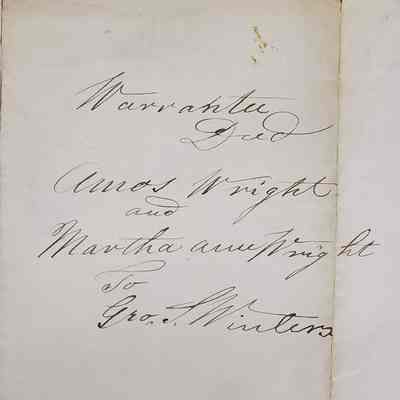 Warrantee
Deed
Amos Wright
and
Martha ann Wright
To
Geo. S. Winters